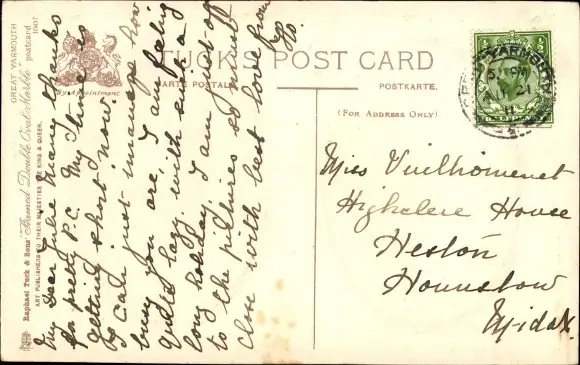 GREAT YARMOUTH
"Framed Double Oval Marble" postcard 1007
Raphael Tuck & Sons'
ART PUBLISHERS TO THEIR MAJESTIES THE KING & QUEEN.
By Appointment
TUCK'S POST CARD
CARTE POSTALE
POSTKARTE.
(For Address Only)
My dear Julie Many thanks
for pretty P.C. My time is
getting short now.
I can just imagine how
busy you are, I am feeling
quite lazy with such a
long holiday. I am just off
to the pictures so must
close with best love from
Miss Vuilhomenet
Highclere House
Heston
Hounslow
Midd
5 PM
21
11